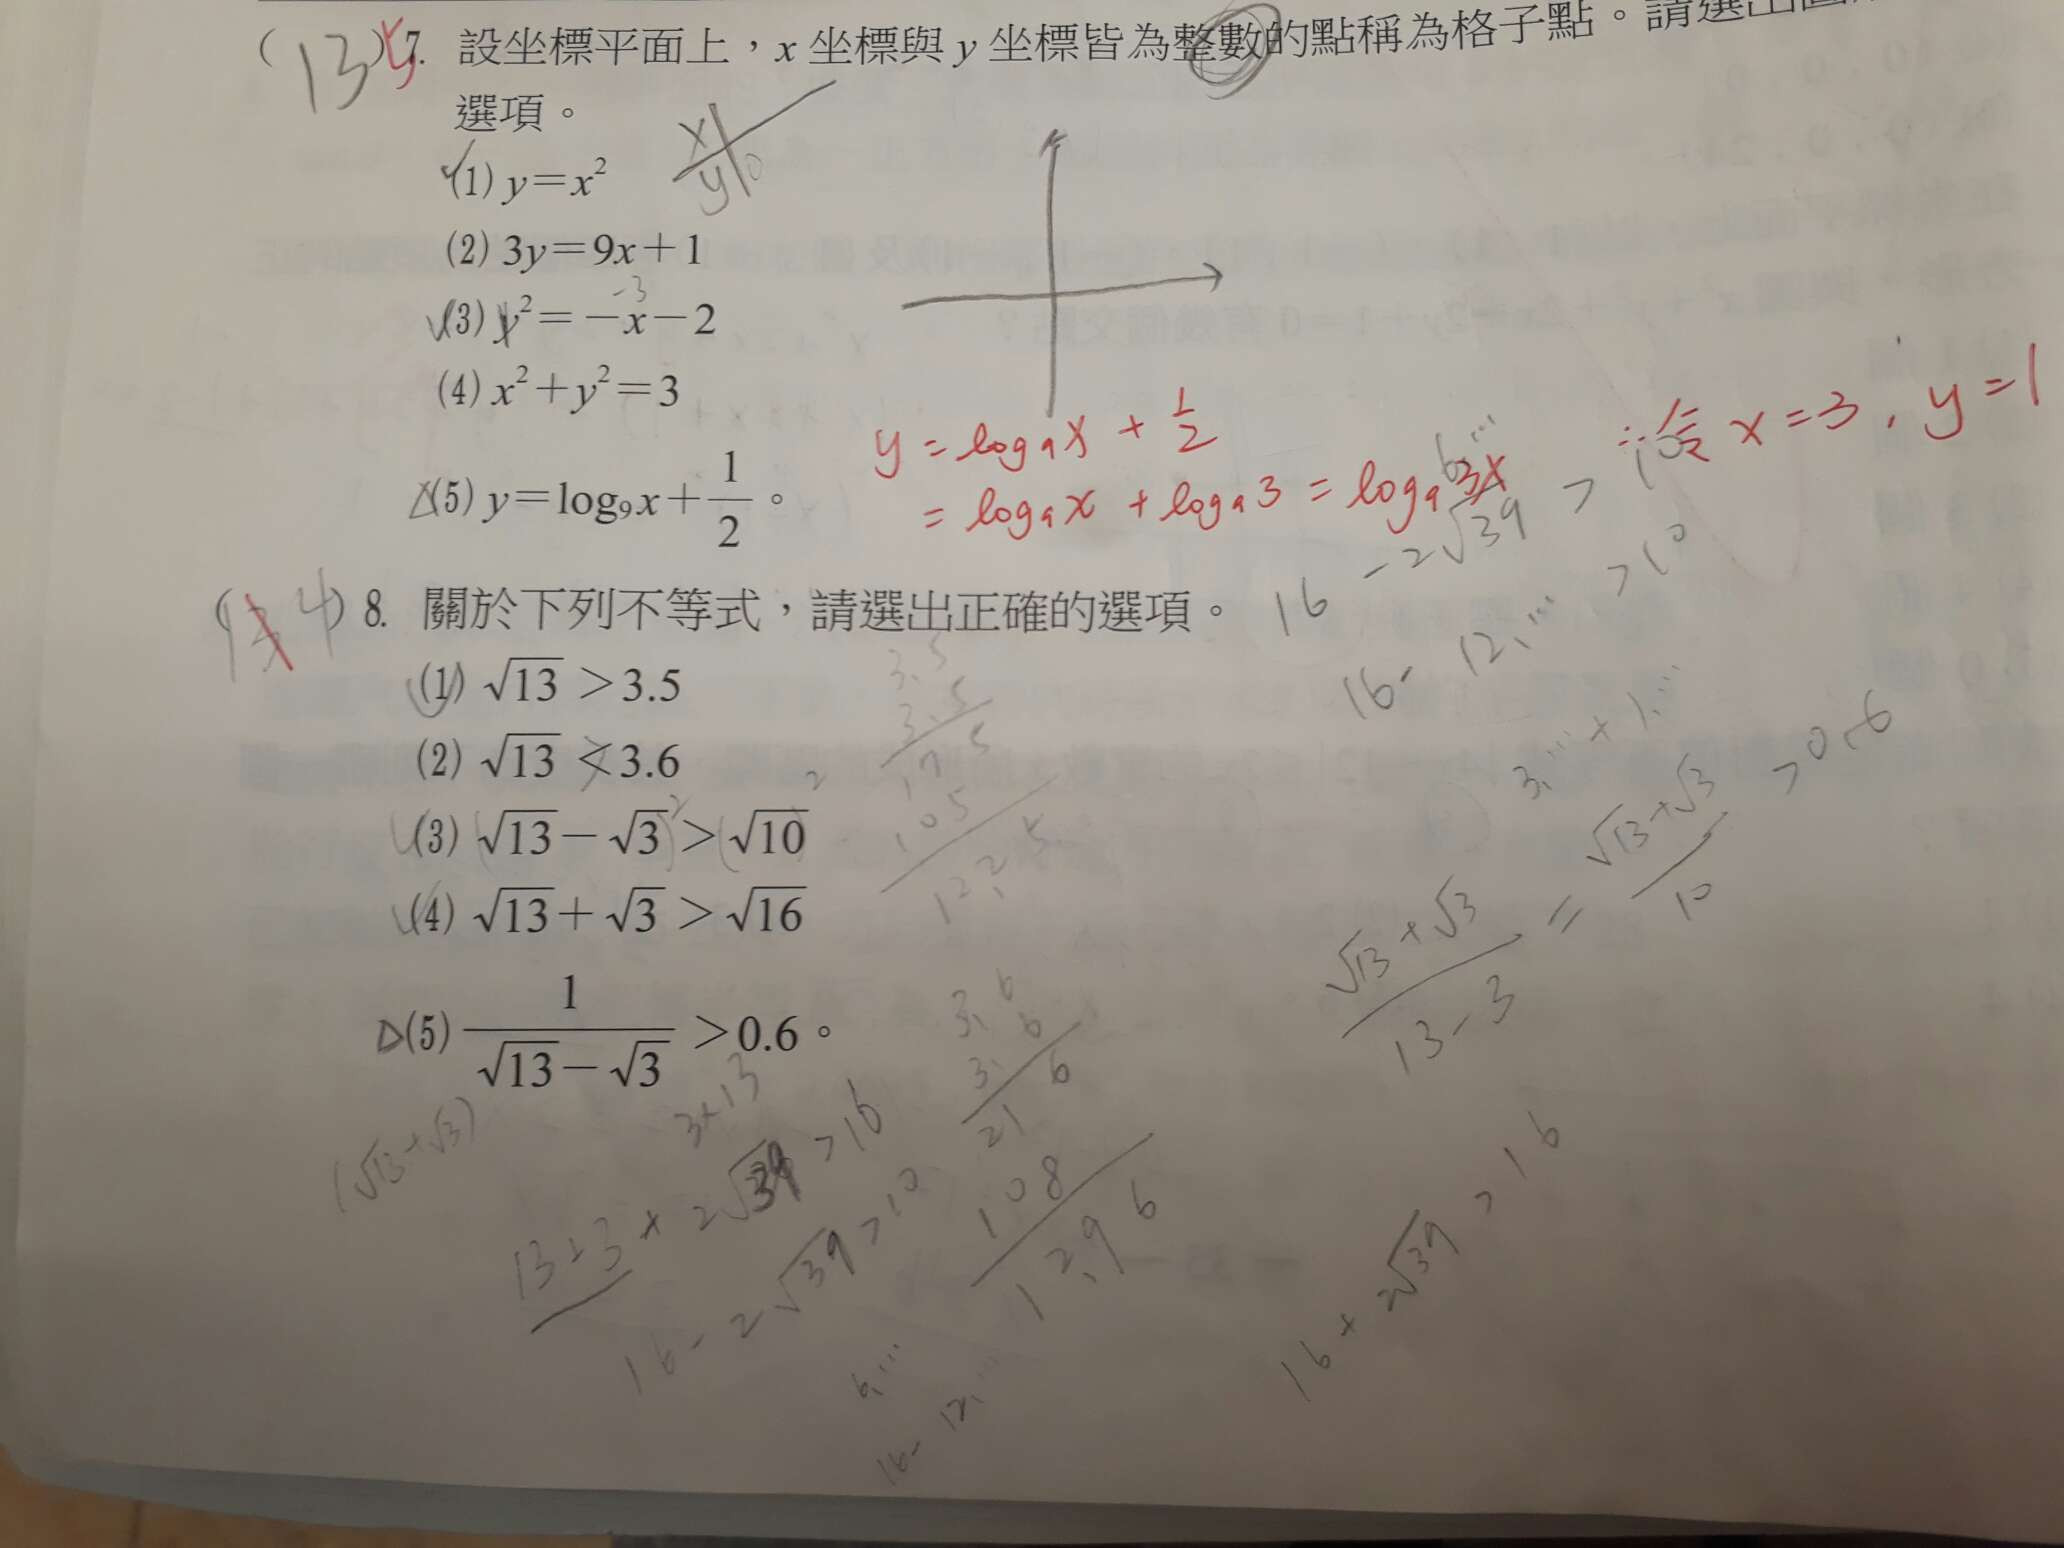 (13 5) 7. 設坐標平面上，x 坐標與 y 坐標皆為整數的點稱為格子點。請選出
選項。
(1) y=x²
x
y 0
(2) 3y=9x+1
(3) y²=-x-2
-3
(4) x²+y²=3
(5) y=log₉x+1/2。
y=log₉x+1/2
=log₉x+log₉3=log₉3x
∴令x=3, y=1
( 4) 8. 關於下列不等式，請選出正確的選項。
16-2√39>10
6...
16-12....>10
(1) √13>3.5
(2) √13<3.6
(3) √13-√3>√10
2 2
(4) √13+√3>√16
(5) 1/(√13-√3)>0.6。
3.5
3.5
175
105
12.25
3....+1....
(√13+√3)/(13-3)=(√13+√3)/10>0.6
3.6
3.6
216
108
12.96
(√13+√3)
3×13
13+3+2√39>16
16-2√39>10
6....
16-12....
16+2√39>16